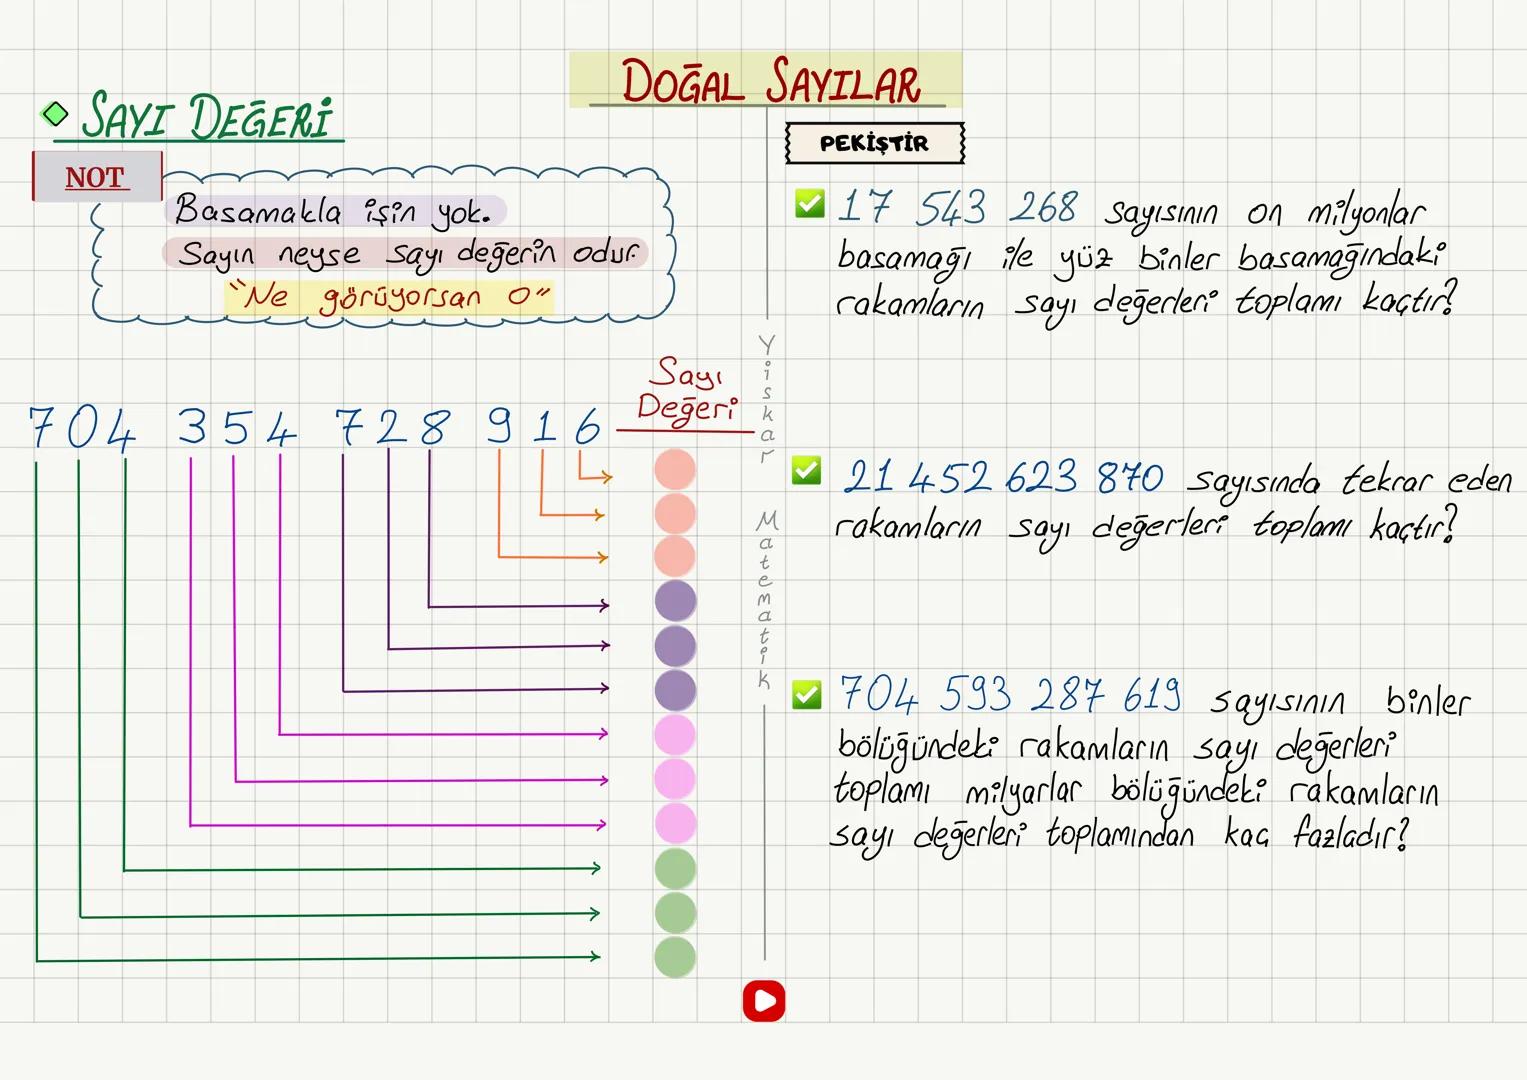 DOĞAL SAYILAR
SAYI DEĞERİ
NOT
Basamakla işin yok.
Sayın neyse sayı değerin odur.
"Ne görüyorsan O"
704 354 728 916
Sayı
Değeri
Yiskar Matematik
PEKİŞTİR
17 543 268 sayısının on milyonlar
basamağı ile yüz binler basamağındaki
rakamların sayı değerleri toplamı kaçtır?
21 452 623 870 sayısında tekrar eden
rakamların sayı değerleri toplamı kaçtır?
704 593 287 619 sayısının binler
bölüğündeki rakamların sayı değerleri
toplamı milyarlar bölüğündeki rakamların
sayı değerleri toplamından kaç fazladır?